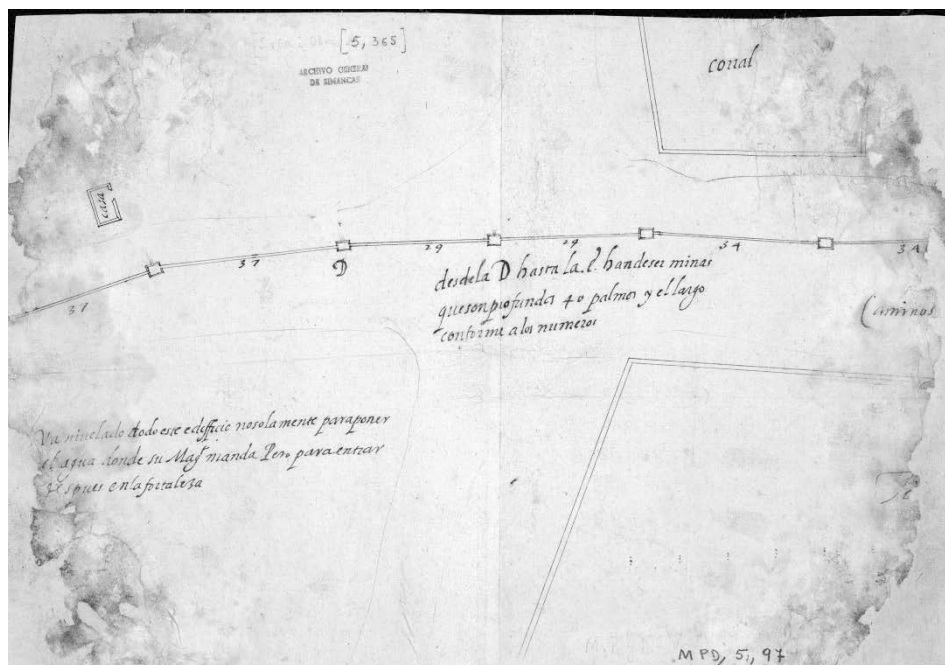 [5, 365]
ARCHIVO GENERAL
DE SIMANCAS
corral
casa
37
37
D
29
29
34
34
desde la D hasta la .e. han de ser minas
que son profundos 40 palmos y el largo
conforme a los numeros
Caminos
Va nivelado todo este edefficio no solamente para poner
el agua donde su Magd manda Pero para entrar
despues en la fortaleza
MPD, 5, 97